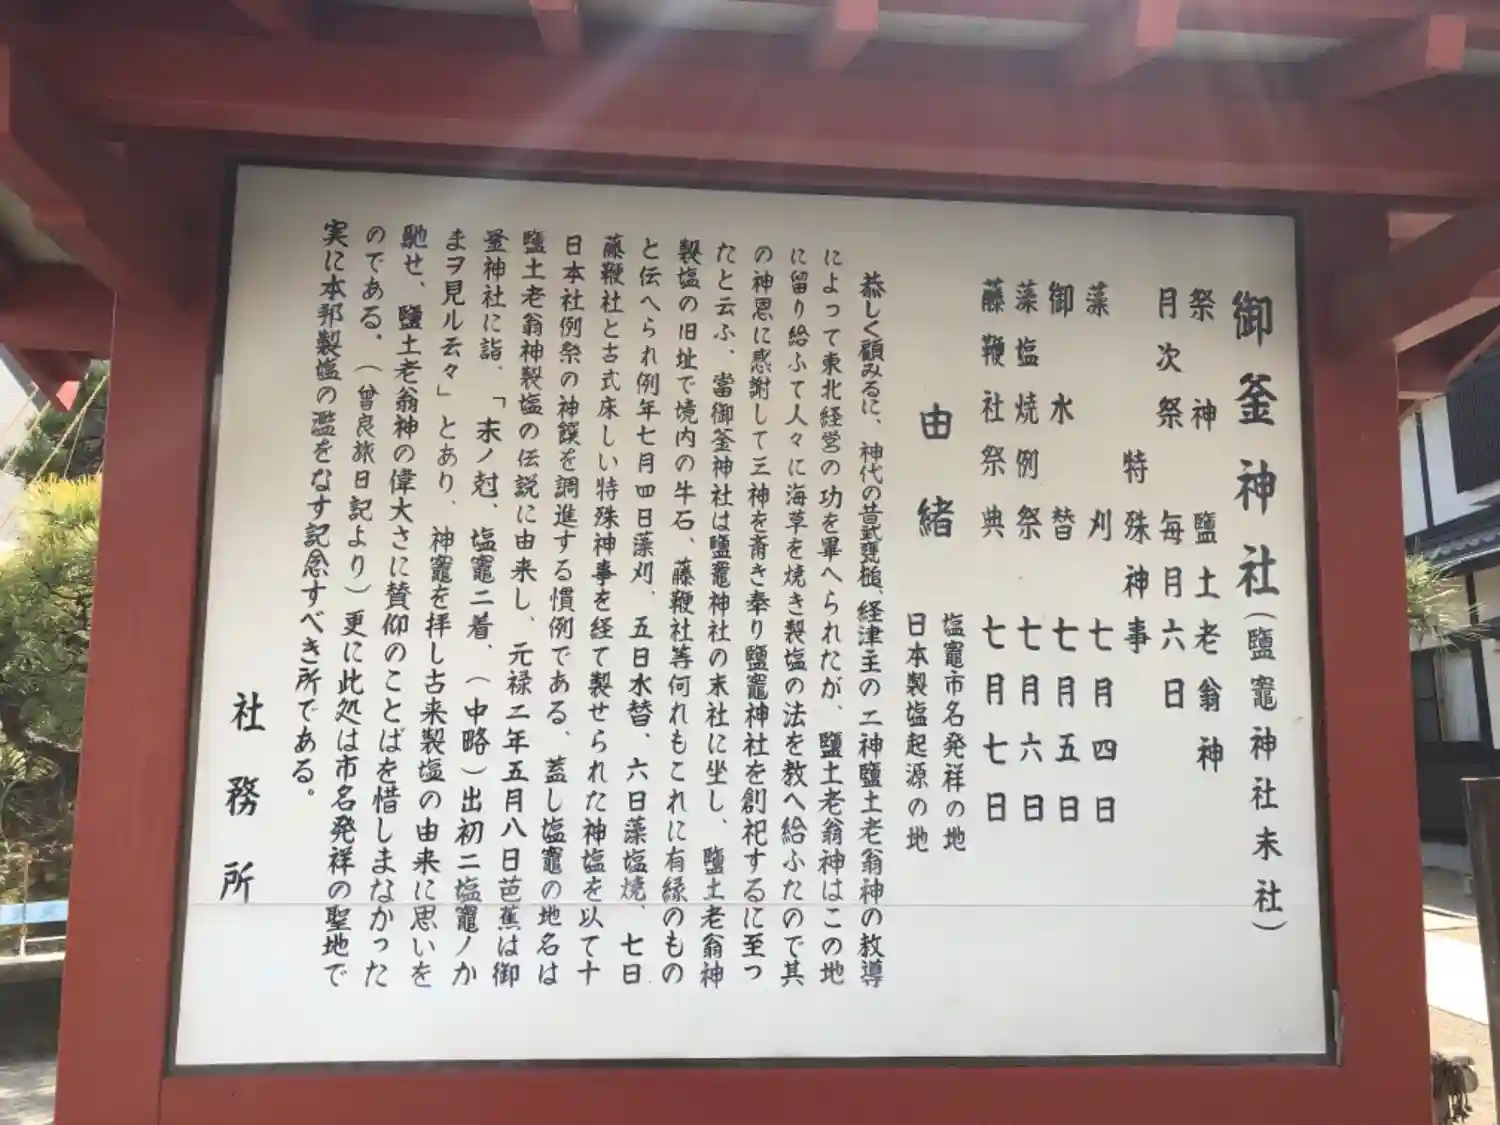 御釜神社（鹽竈神社末社）
祭神　鹽土老翁神
月次祭　毎月六日
特殊神事
藻刈　七月四日
御水替　七月五日
藻塩焼例祭　七月六日
藤鞭社祭典　七月七日
由緒
塩竈市名発祥の地
日本製塩起源の地
恭しく顧みるに、神代の昔武甕槌、経津主の二神鹽土老翁神の教導
によって東北経営の功を畢へられたが、鹽土老翁神はこの地
に留り給ふて人々に海草を焼き製塩の法を教へ給ふたので其
の神恩に感謝して三神を斎き奉り鹽竈神社を創祀するに至っ
たと云ふ、當御釜神社は鹽竈神社の末社に坐し、鹽土老翁神
製塩の旧址で境内の牛石、藤鞭社等何れもこれに有縁のもの
と伝へられ例年七月四日藻刈、五日水替、六日藻塩焼、七日
藤鞭社と古式床しい特殊神事を経て製せられた神塩を以て十
日本社例祭の神饌を調進する慣例である、蓋し塩竈の地名は
鹽土老翁神製塩の伝説に由来し、元禄二年五月八日芭蕉は御
釜神社に詣、「末ノ尅、塩竈ニ着、（中略）出初ニ塩竈ノか
まヲ見ル云々」とあり、神竈を拝し古来製塩の由来に思いを
馳せ、鹽土老翁神の偉大さに賛仰のことばを惜しまなかった
のである。（曾良旅日記より）更に此処は市名発祥の聖地で
実に本邦製塩の濫をなす記念すべき所である。
社務所